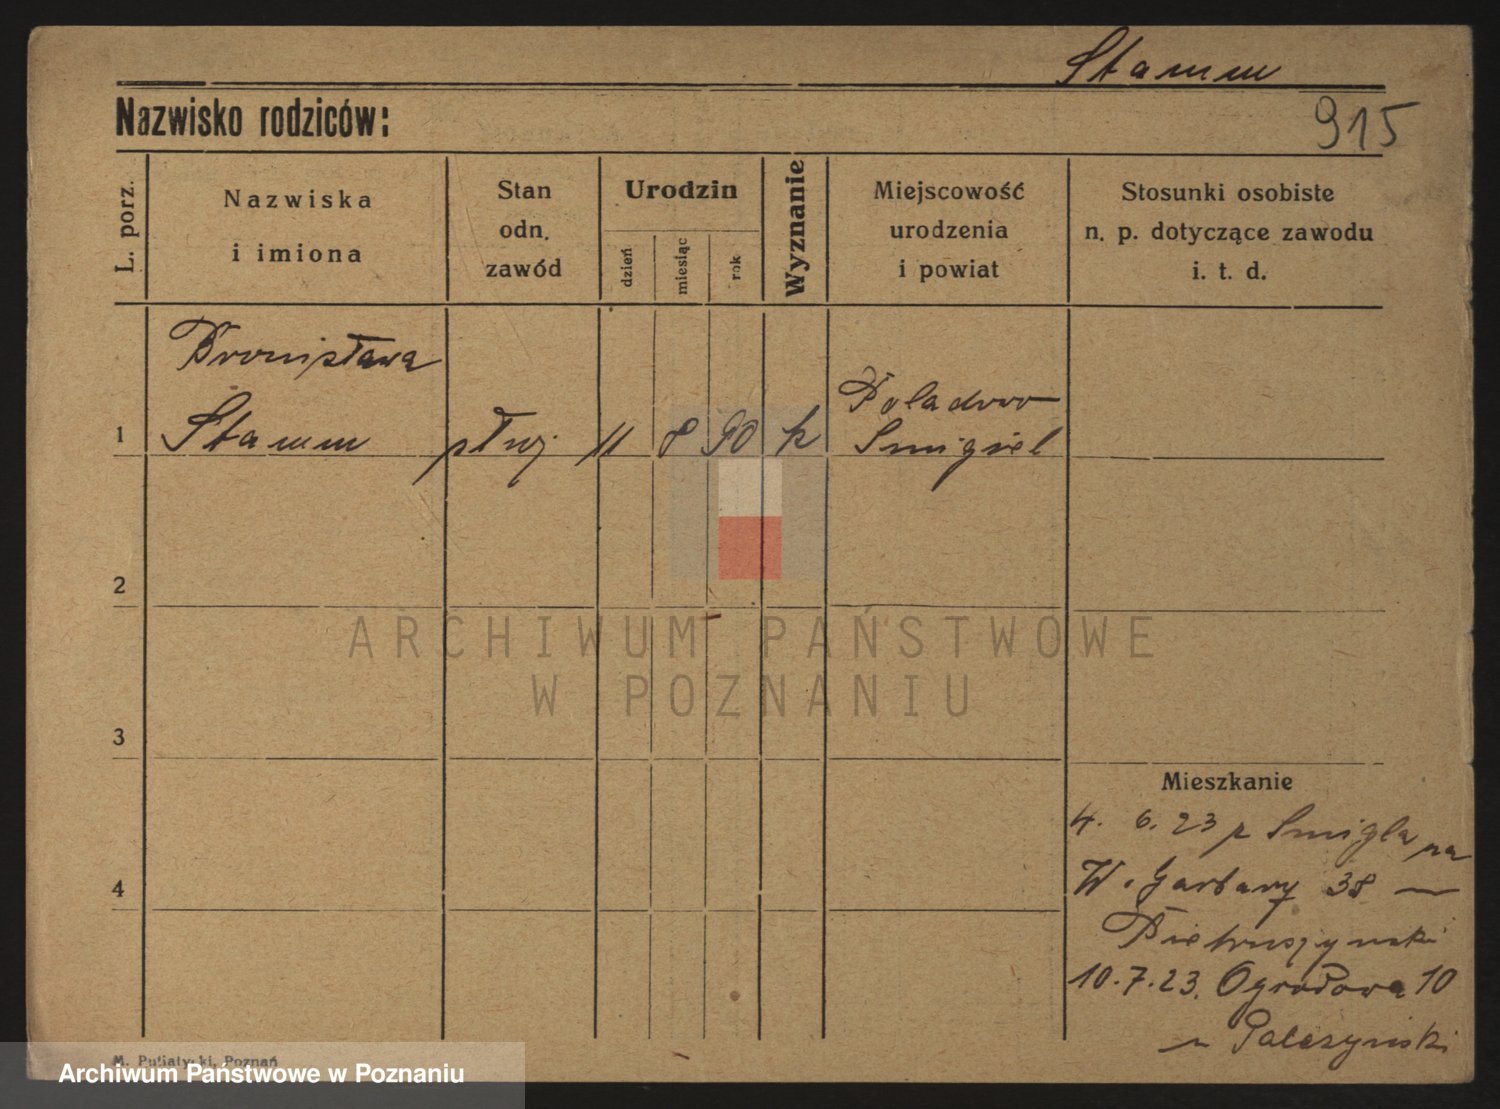 Stamm
Nazwisko rodziców:
915
L. porz.
Nazwiska
i imiona
Stan
odn.
zawód
Urodzin
dzień
miesiąc
rok
Wyznanie
Miejscowość
urodzenia
i powiat
Stosunki osobiste
n. p. dotyczące zawodu
i. t. d.
Bronisława
1 Stamm służ 11 8 90 k
Poladowo
Smigiel
2
ARCHIWUM PAŃSTWOWE
W POZNANIU
3
Mieszkanie
4. 6. 23 z Smigla na
4
W. Garbary 38
Pietruszynski
10.7.23. Ogrodowa 10
M. Putiatycki, Poznań
Archiwum Państwowe w Poznaniu